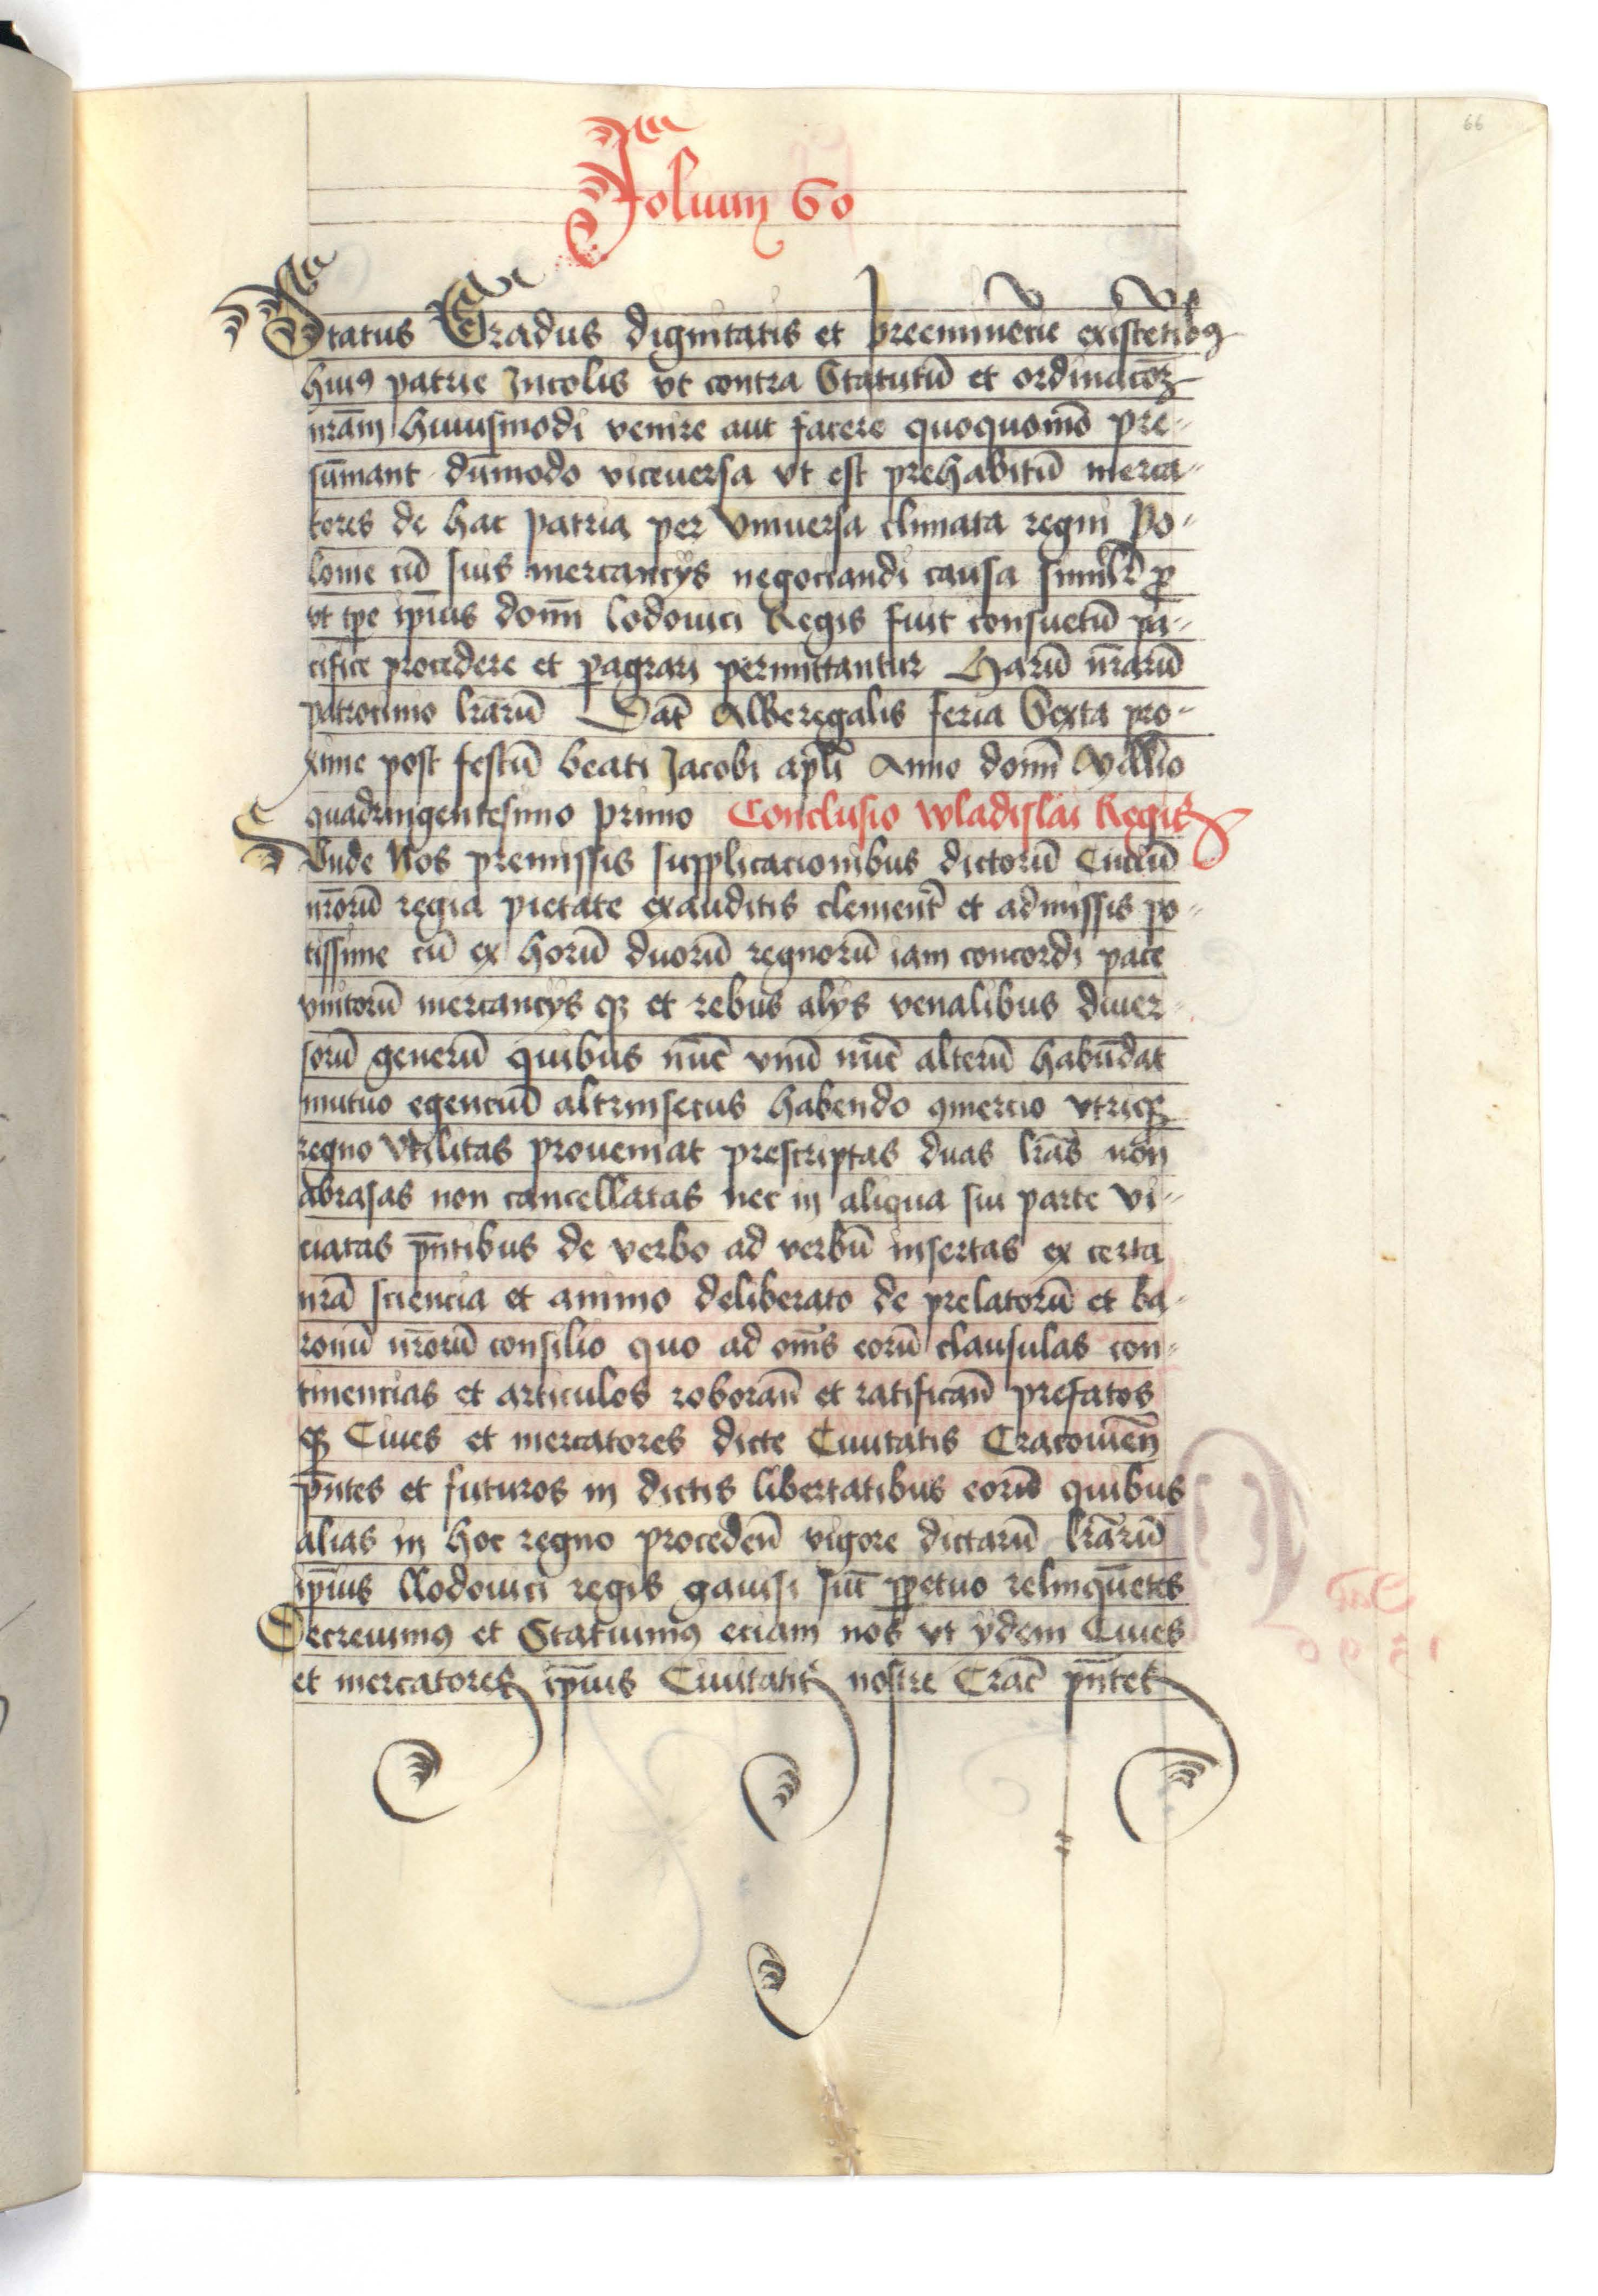 66
Folium 60
Status Gradus dignitatis et preeminẽcie existẽtibꝰ
huiꝰ patrie Incolis vt contra Statutũ et ordinacõꝫ
nr̃am huiusmodi venire aut facere quoquomõ pre-
sũmant dũmodo viceuersa vt est prehabitũ merca-
tores de hac patria per vniuersa climata regni Po-
lonie cũ suis mercancijs negociandi causa simil̃r ꝓ
vt tp̃e ip̃ius domĩ lodouici Regis fuit consuetũ pa-
cifice procedere et ꝑagrari permittantur Harũ nr̃arũ
patrocinio lr̃arũ Dat̃ Alberegalis feria Sexta pro-
xime post festũ beati Jacobi apl̃i Anno domĩ Mill̃io
quadringentesimo primo Conclusio wladislai Regis
Vnde Nos premissis supplicacionibus dictorũ Ciuiũ
nr̃orũ regia pietate exauditis clement̃ et admissis po-
tissime cũ ex horũ duorũ regnorũ iam concordi pace
vnitorũ mercancijs qꝫ et rebus alijs venalibus diuer-
sorũ generũ quibus nũc vnũ nũc alterũ habũdat
mutuo egenciũ altrinsecus habendo ꝯmercio vtriqꝫ
regno vtilitas proueniat prescriptas duas lr̃as non
abrasas non cancellatas nec in aliqua sui parte vi-
ciatas pñtibus de verbo ad verbũ insertas ex certa
nr̃a sciencia et animo deliberato de prelatorũ et ba-
ronũ nr̃orũ consilio quo ad om̃s eorũ clausulas con-
tinencias et articulos roborañ et ratificañ prefatos
qꝫ Ciues et mercatores dicte Ciuitatis Cracouieñ
pñtes et futuros in dictis libertatibus eorũ quibus
alias in hoc regno procedeñ vigore dictarũ lr̃arũ
ip̃ius llodouici regis gauisi sũt ꝑpetuo relinquẽtes
Decreuimꝰ et Statuimꝰ eciam nos vt ydem Ciues
et mercatores ip̃ius Ciuitatis nostre Crac̃ pñtes